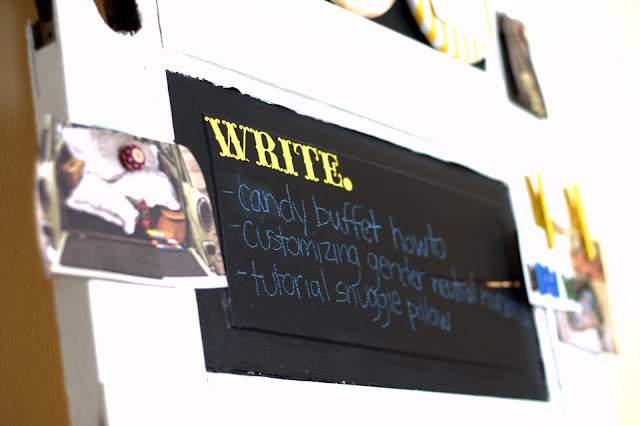 WRITE.
-candy buffet howto
-customizing gender neutral
-tutorial snuggie pillow